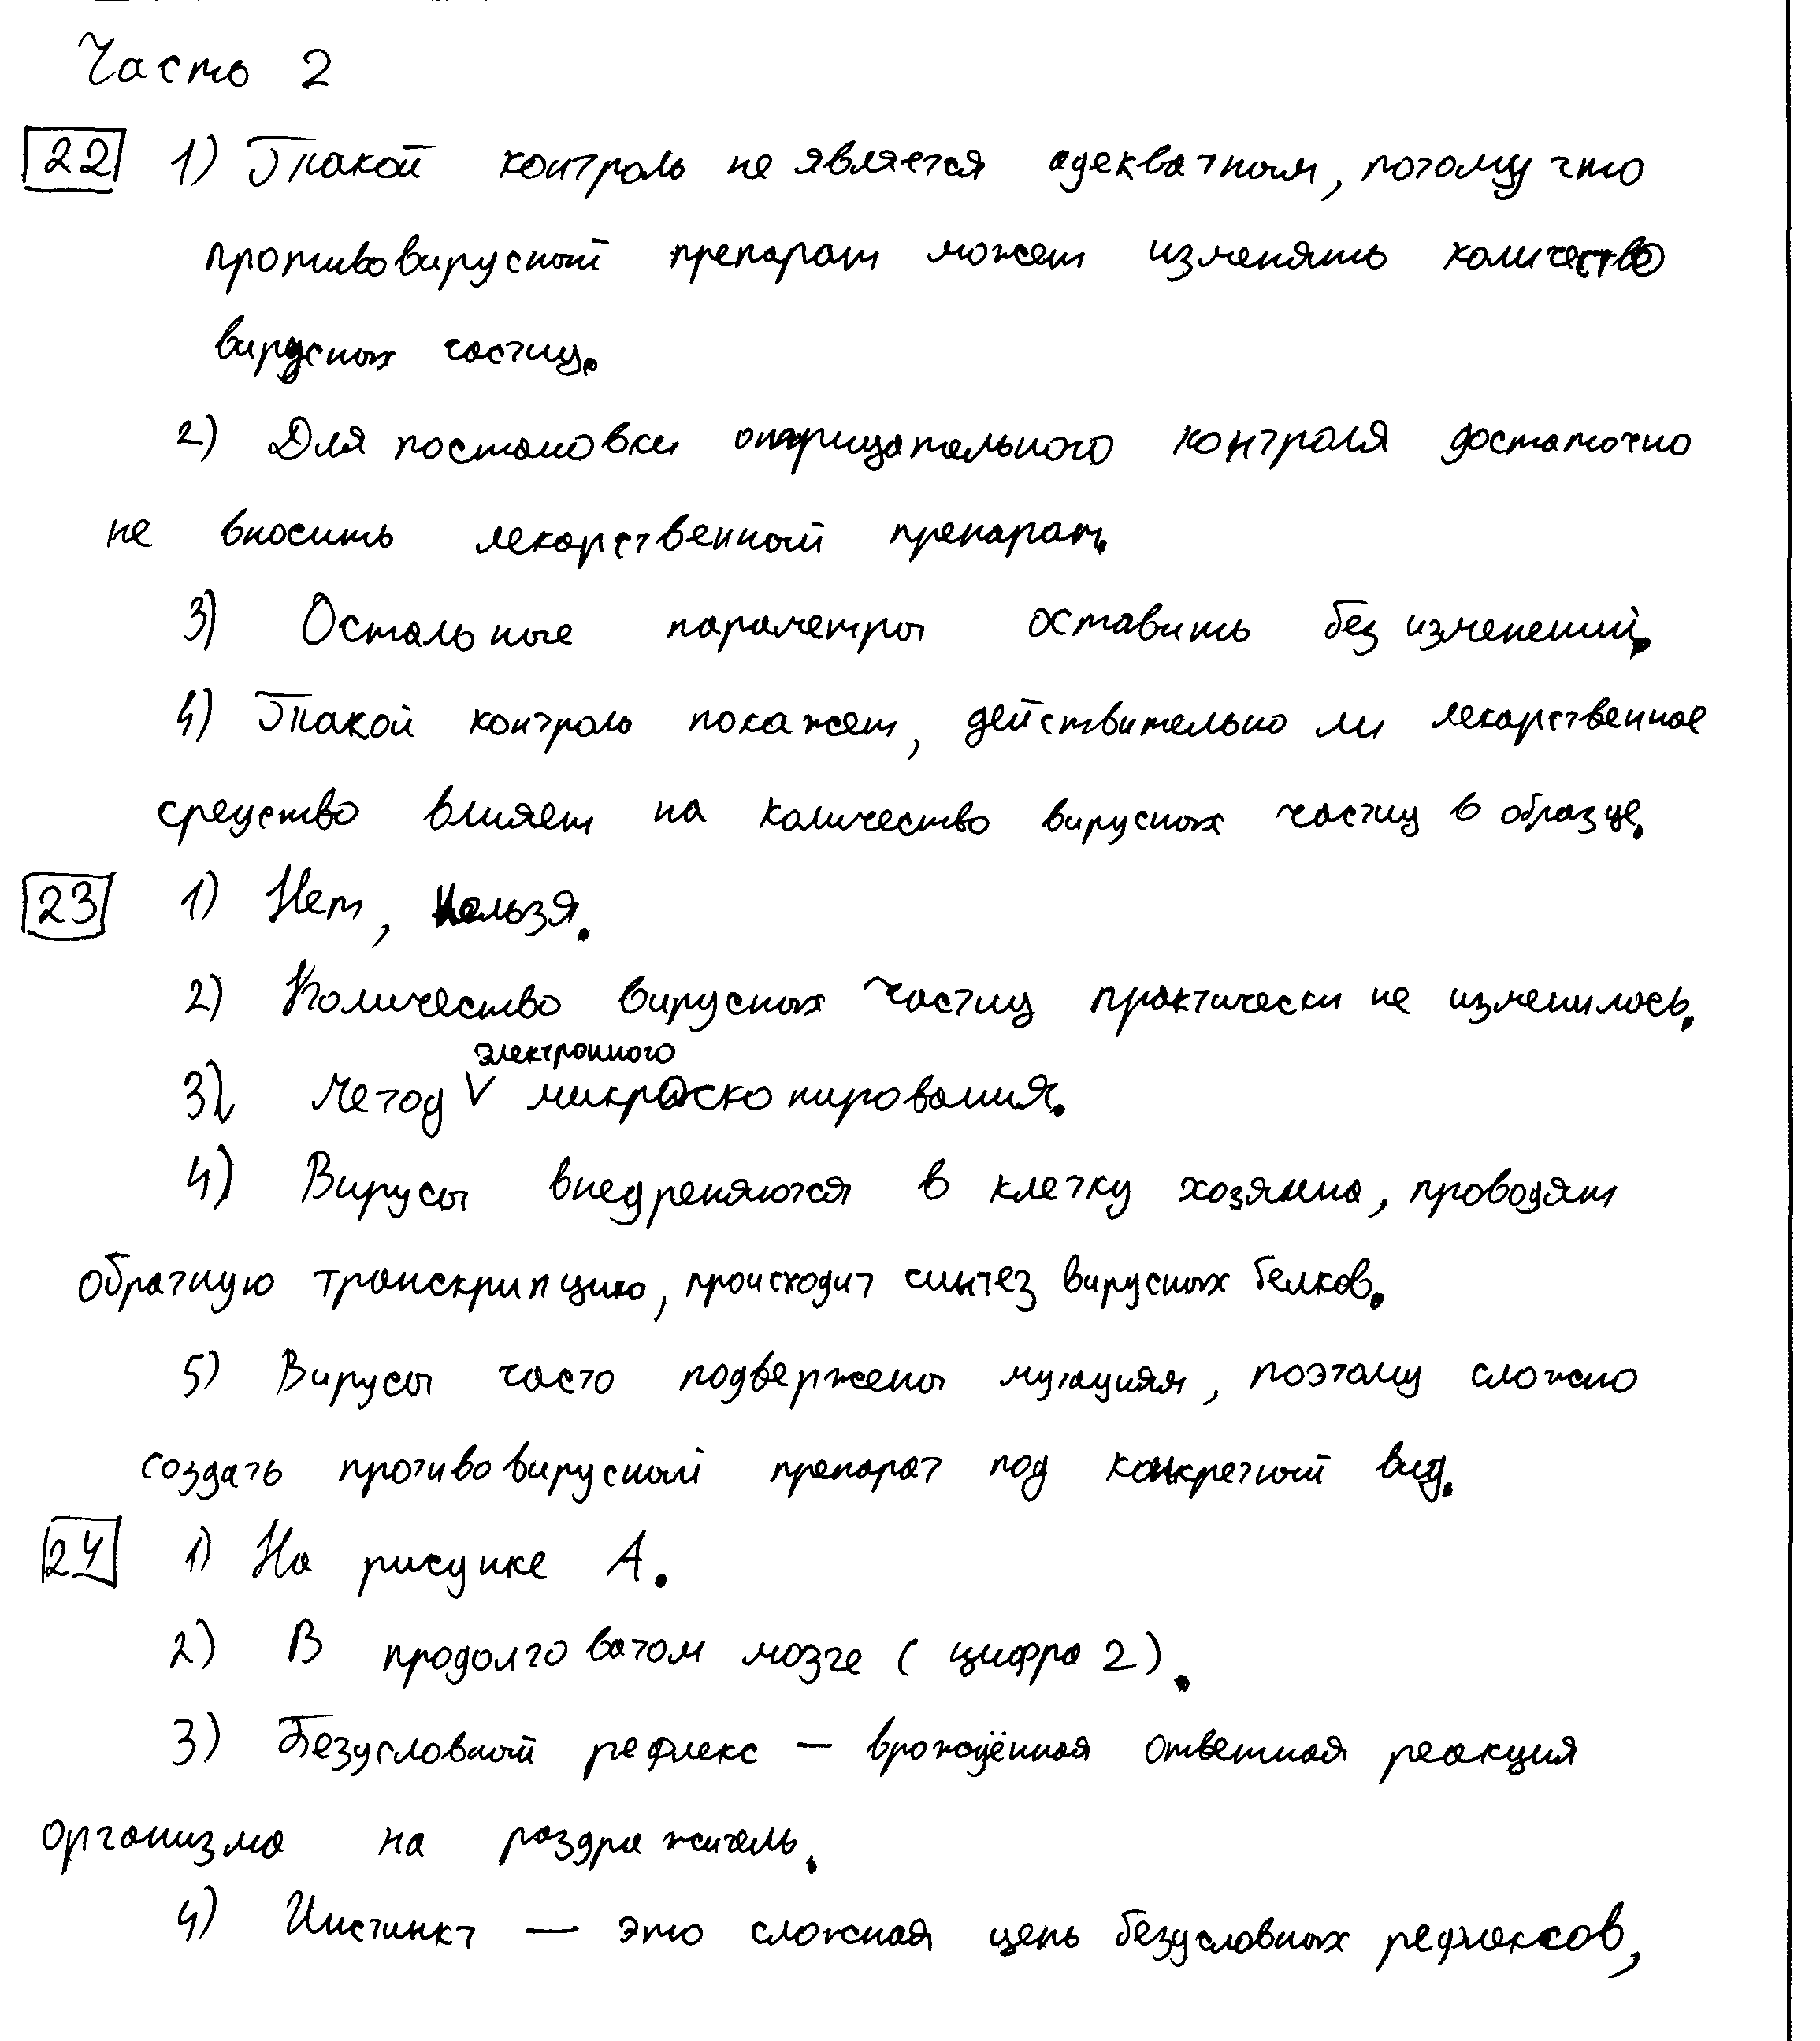 Часть 2
22 1) Такой контроль не является адекватным, потому что
противовирусный препарат может изменять количество
вирусных частиц.
2) Для постановки отрицательного контроля достаточно
не вносить лекарственный препарат.
3) Остальные параметры оставить без изменений.
4) Такой контроль покажет, действительно ли лекарственное
средство влияет на количество вирусных частиц в образце.
23 1) Нет, нельзя.
2) Количество вирусных частиц практически не изменилось.
электронного
3) Метод V микроскопирования.
4) Вирусы внедреняются в клетку хозяина, проводят
обратную транскрипцию, происходит синтез вирусных белков.
5) Вирусы часто подвержены мутациям, поэтому сложно
создать противовирусный препарат под конкретный вид.
24 1) На рисунке А.
2) В продолговатом мозге (цифра 2).
3) Безусловный рефлекс — врождённая ответная реакция
организма на раздражитель.
4) Инстинкт — это сложная цепь безусловных рефлексов,